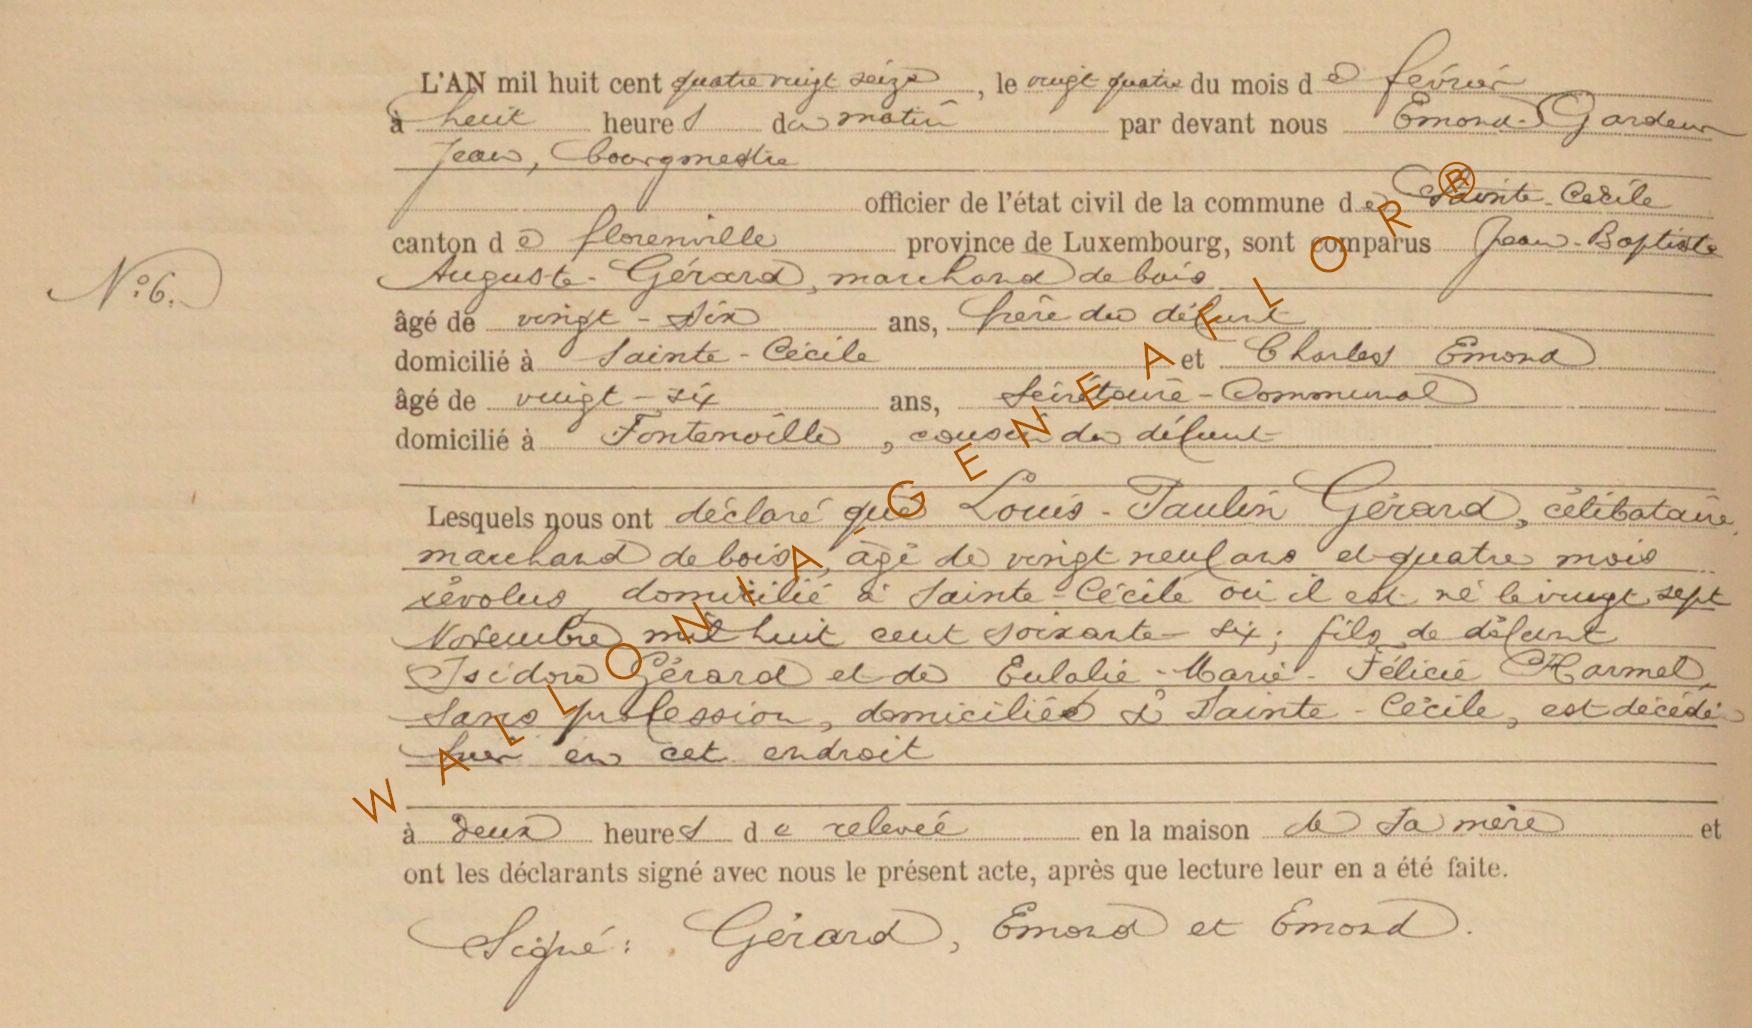 L'AN mil huit cent quatre vingt seize, le vingt quatre du mois de février
à huit heures du matin par devant nous Emond-Gardeur
Jean, bourgmestre
officier de l'état civil de la commune de Sainte-Cécile
canton de florenville province de Luxembourg, sont comparus Jean-Baptiste
Auguste-Gérard, marchand de bois
N° 6.
âgé de vingt-six ans, frère du défunt
domicilié à Sainte-Cécile et Charles Emond
âgé de vingt-six ans, Secrétaire-Communal
domicilié à Fontenoille, cousin du défunt
Lesquels nous ont déclaré que Louis-Paulin Gérard, célibataire,
marchand de bois, âgé de vingt neuf ans et quatre mois
révolus, domicilié à Sainte-Cécile où il est né le vingt sept
Novembre mil huit cent soixante-six; fils de défunt
Isidore Gérard et de Eulalie-Marie-Félicie Harmel,
sans profession, domiciliée à Sainte-Cécile, est décédé
hier en cet endroit
à deux heures de relevée en la maison de sa mère et
ont les déclarants signé avec nous le présent acte, après que lecture leur en a été faite.
Signé: Gérard, Emond et Emond.
WALLONIA-GENEAFLOR®